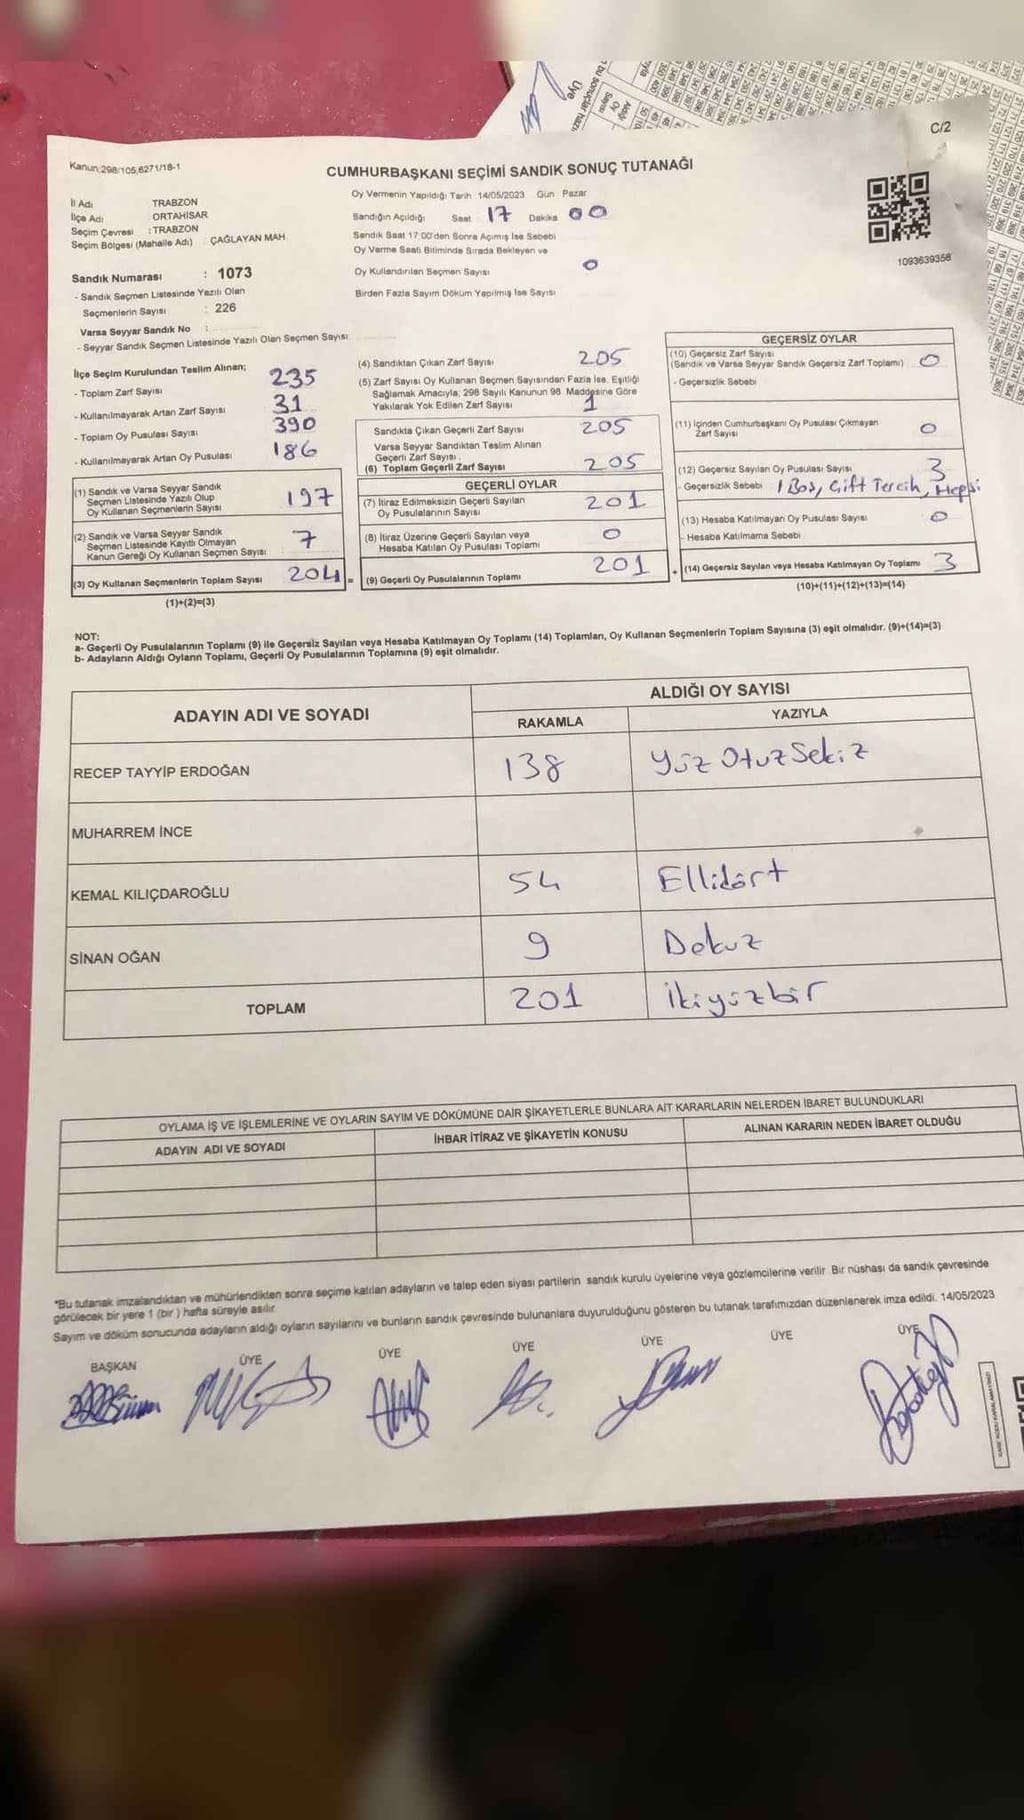 C/2
Kanun:298/105,6271/18-1
CUMHURBAŞKANI SEÇİMİ SANDIK SONUÇ TUTANAĞI
İl Adı TRABZON
İlçe Adı ORTAHİSAR
Seçim Çevresi : TRABZON
Seçim Bölgesi (Mahalle Adı) : ÇAĞLAYAN MAH.
Oy Vermenin Yapıldığı Tarih 14/05/2023 Gün Pazar
Sandığın Açıldığı Saat 17 Dakika 00
Sandık Saat 17:00'den Sonra Açımış İse Sebebi
Oy Verme Saati Bitiminde Sırada Bekleyen ve
Oy Kullandırılan Seçmen Sayısı 0
Birden Fazla Sayım Döküm Yapılmış İse Sayısı
1093639358
Sandık Numarası : 1073
- Sandık Seçmen Listesinde Yazılı Olan
Seçmenlerin Sayısı : 226
Varsa Seyyar Sandık No :
- Seyyar Sandık Seçmen Listesinde Yazılı Olan Seçmen Sayısı:
İlçe Seçim Kurulundan Teslim Alınan;
- Toplam Zarf Sayısı 235
- Kullanılmayarak Artan Zarf Sayısı 31
- Toplam Oy Pusulası Sayısı 390
- Kullanılmayarak Artan Oy Pusulası 186
(1) Sandık ve Varsa Seyyar Sandık
Seçmen Listesinde Yazılı Olup
Oy Kullanan Seçmenlerin Sayısı 197
(2) Sandık ve Varsa Seyyar Sandık
Seçmen Listesinde Kayıtlı Olmayan
Kanun Gereği Oy Kullanan Seçmen Sayısı 7
(3) Oy Kullanan Seçmenlerin Toplam Sayısı 204 =
(1)+(2)=(3)
(4) Sandıktan Çıkan Zarf Sayısı 205
(5) Zarf Sayısı Oy Kullanan Seçmen Sayısından Fazla İse, Eşitliği
Sağlamak Amacıyla; 298 Sayılı Kanunun 98. Maddesine Göre
Yakılarak Yok Edilen Zarf Sayısı 1
Sandıkta Çıkan Geçerli Zarf Sayısı 205
Varsa Seyyar Sandıktan Teslim Alınan
Geçerli Zarf Sayısı :
(6) Toplam Geçerli Zarf Sayısı 205
GEÇERLİ OYLAR
(7) İtiraz Edilmeksizin Geçerli Sayılan
Oy Pusulalarının Sayısı 201
(8) İtiraz Üzerine Geçerli Sayılan veya
Hesaba Katılan Oy Pusulası Toplamı 0
(9) Geçerli Oy Pusulalarının Toplamı 201 +
GEÇERSİZ OYLAR
(10) Geçersiz Zarf Sayısı
(Sandık ve Varsa Seyyar Sandık Geçersiz Zarf Toplamı) 0
- Geçersizlik Sebebi
(11) İçinden Cumhurbaşkanı Oy Pusulası Çıkmayan
Zarf Sayısı 0
(12) Geçersiz Sayılan Oy Pusulası Sayısı 3
- Geçersizlik Sebebi 1 Boş, Çift Tercih, Hepsi
(13) Hesaba Katılmayan Oy Pusulası Sayısı 0
- Hesaba Katılmama Sebebi
(14) Geçersiz Sayılan veya Hesaba Katılmayan Oy Toplamı 3
(10)+(11)+(12)+(13)=(14)
NOT:
a- Geçerli Oy Pusulalarının Toplamı (9) ile Geçersiz Sayılan veya Hesaba Katılmayan Oy Toplamı (14) Toplamları, Oy Kullanan Seçmenlerin Toplam Sayısına (3) eşit olmalıdır. (9)+(14)=(3)
b- Adayların Aldığı Oyların Toplamı, Geçerli Oy Pusulalarının Toplamına (9) eşit olmalıdır.
ADAYIN ADI VE SOYADI
ALDIĞI OY SAYISI
RAKAMLA YAZIYLA
RECEP TAYYİP ERDOĞAN 138 Yüz Otuz Sekiz
MUHARREM İNCE
KEMAL KILIÇDAROĞLU 54 Ellidört
SİNAN OĞAN 9 Dokuz
TOPLAM 201 ikiyüzbir
OYLAMA İŞ VE İŞLEMLERİNE VE OYLARIN SAYIM VE DÖKÜMÜNE DAİR ŞİKAYETLERLE BUNLARA AİT KARARLARIN NELERDEN İBARET BULUNDUKLARI
ADAYIN ADI VE SOYADI İHBAR İTİRAZ VE ŞİKAYETİN KONUSU ALINAN KARARIN NEDEN İBARET OLDUĞU
*Bu tutanak imzalandıktan ve mühürlendikten sonra seçime katılan adayların ve talep eden siyasi partilerin sandık kurulu üyelerine veya gözlemcilerine verilir. Bir nüshası da sandık çevresinde
görülecek bir yere 1 (bir ) hafta süreyle asılır.
Sayım ve döküm sonucunda adayların aldığı oyların sayılarını ve bunların sandık çevresinde bulunanlara duyurulduğunu gösteren bu tutanak tarafımızdan düzenlenerek imza edildi. 14/05/2023
BAŞKAN ÜYE ÜYE ÜYE ÜYE ÜYE ÜYE